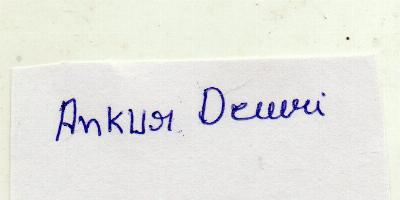 Ankur Dewri